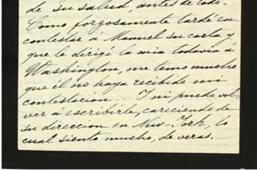 de su salud, antes de todo.
Como forzosamente tardé en
contestar á Manuel su carta y
que le dirigí la mia todavia á
Washington, me temo mucho
que él no haya recibido mi
contestacion... I ni puedo vol-
ver á escribirle, careciendo de
su direccion en New-York, lo
cual siento mucho, de veras.